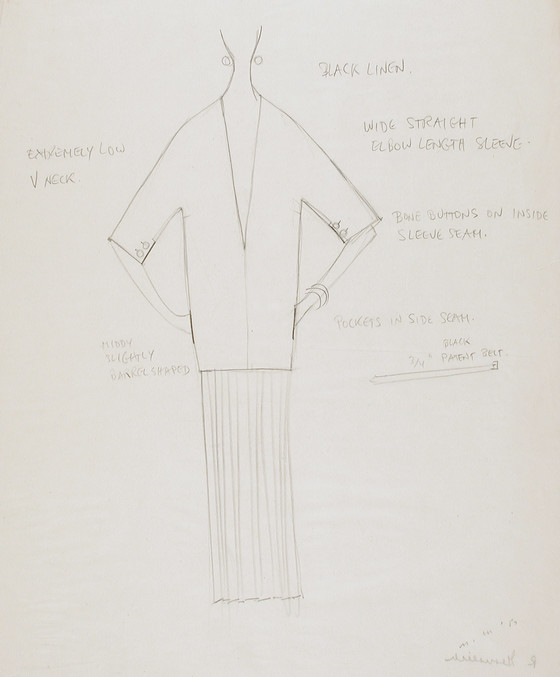 BLACK LINEN.
WIDE STRAIGHT
ELBOW LENGTH SLEEVE.
EXTREMELY LOW
V NECK.
BONE BUTTONS ON INSIDE
SLEEVE SEAM.
POCKETS IN SIDE SEAM.
MIDDY
SLIGHTLY
BARREL SHAPED
BLACK
3/4" PATENT BELT.